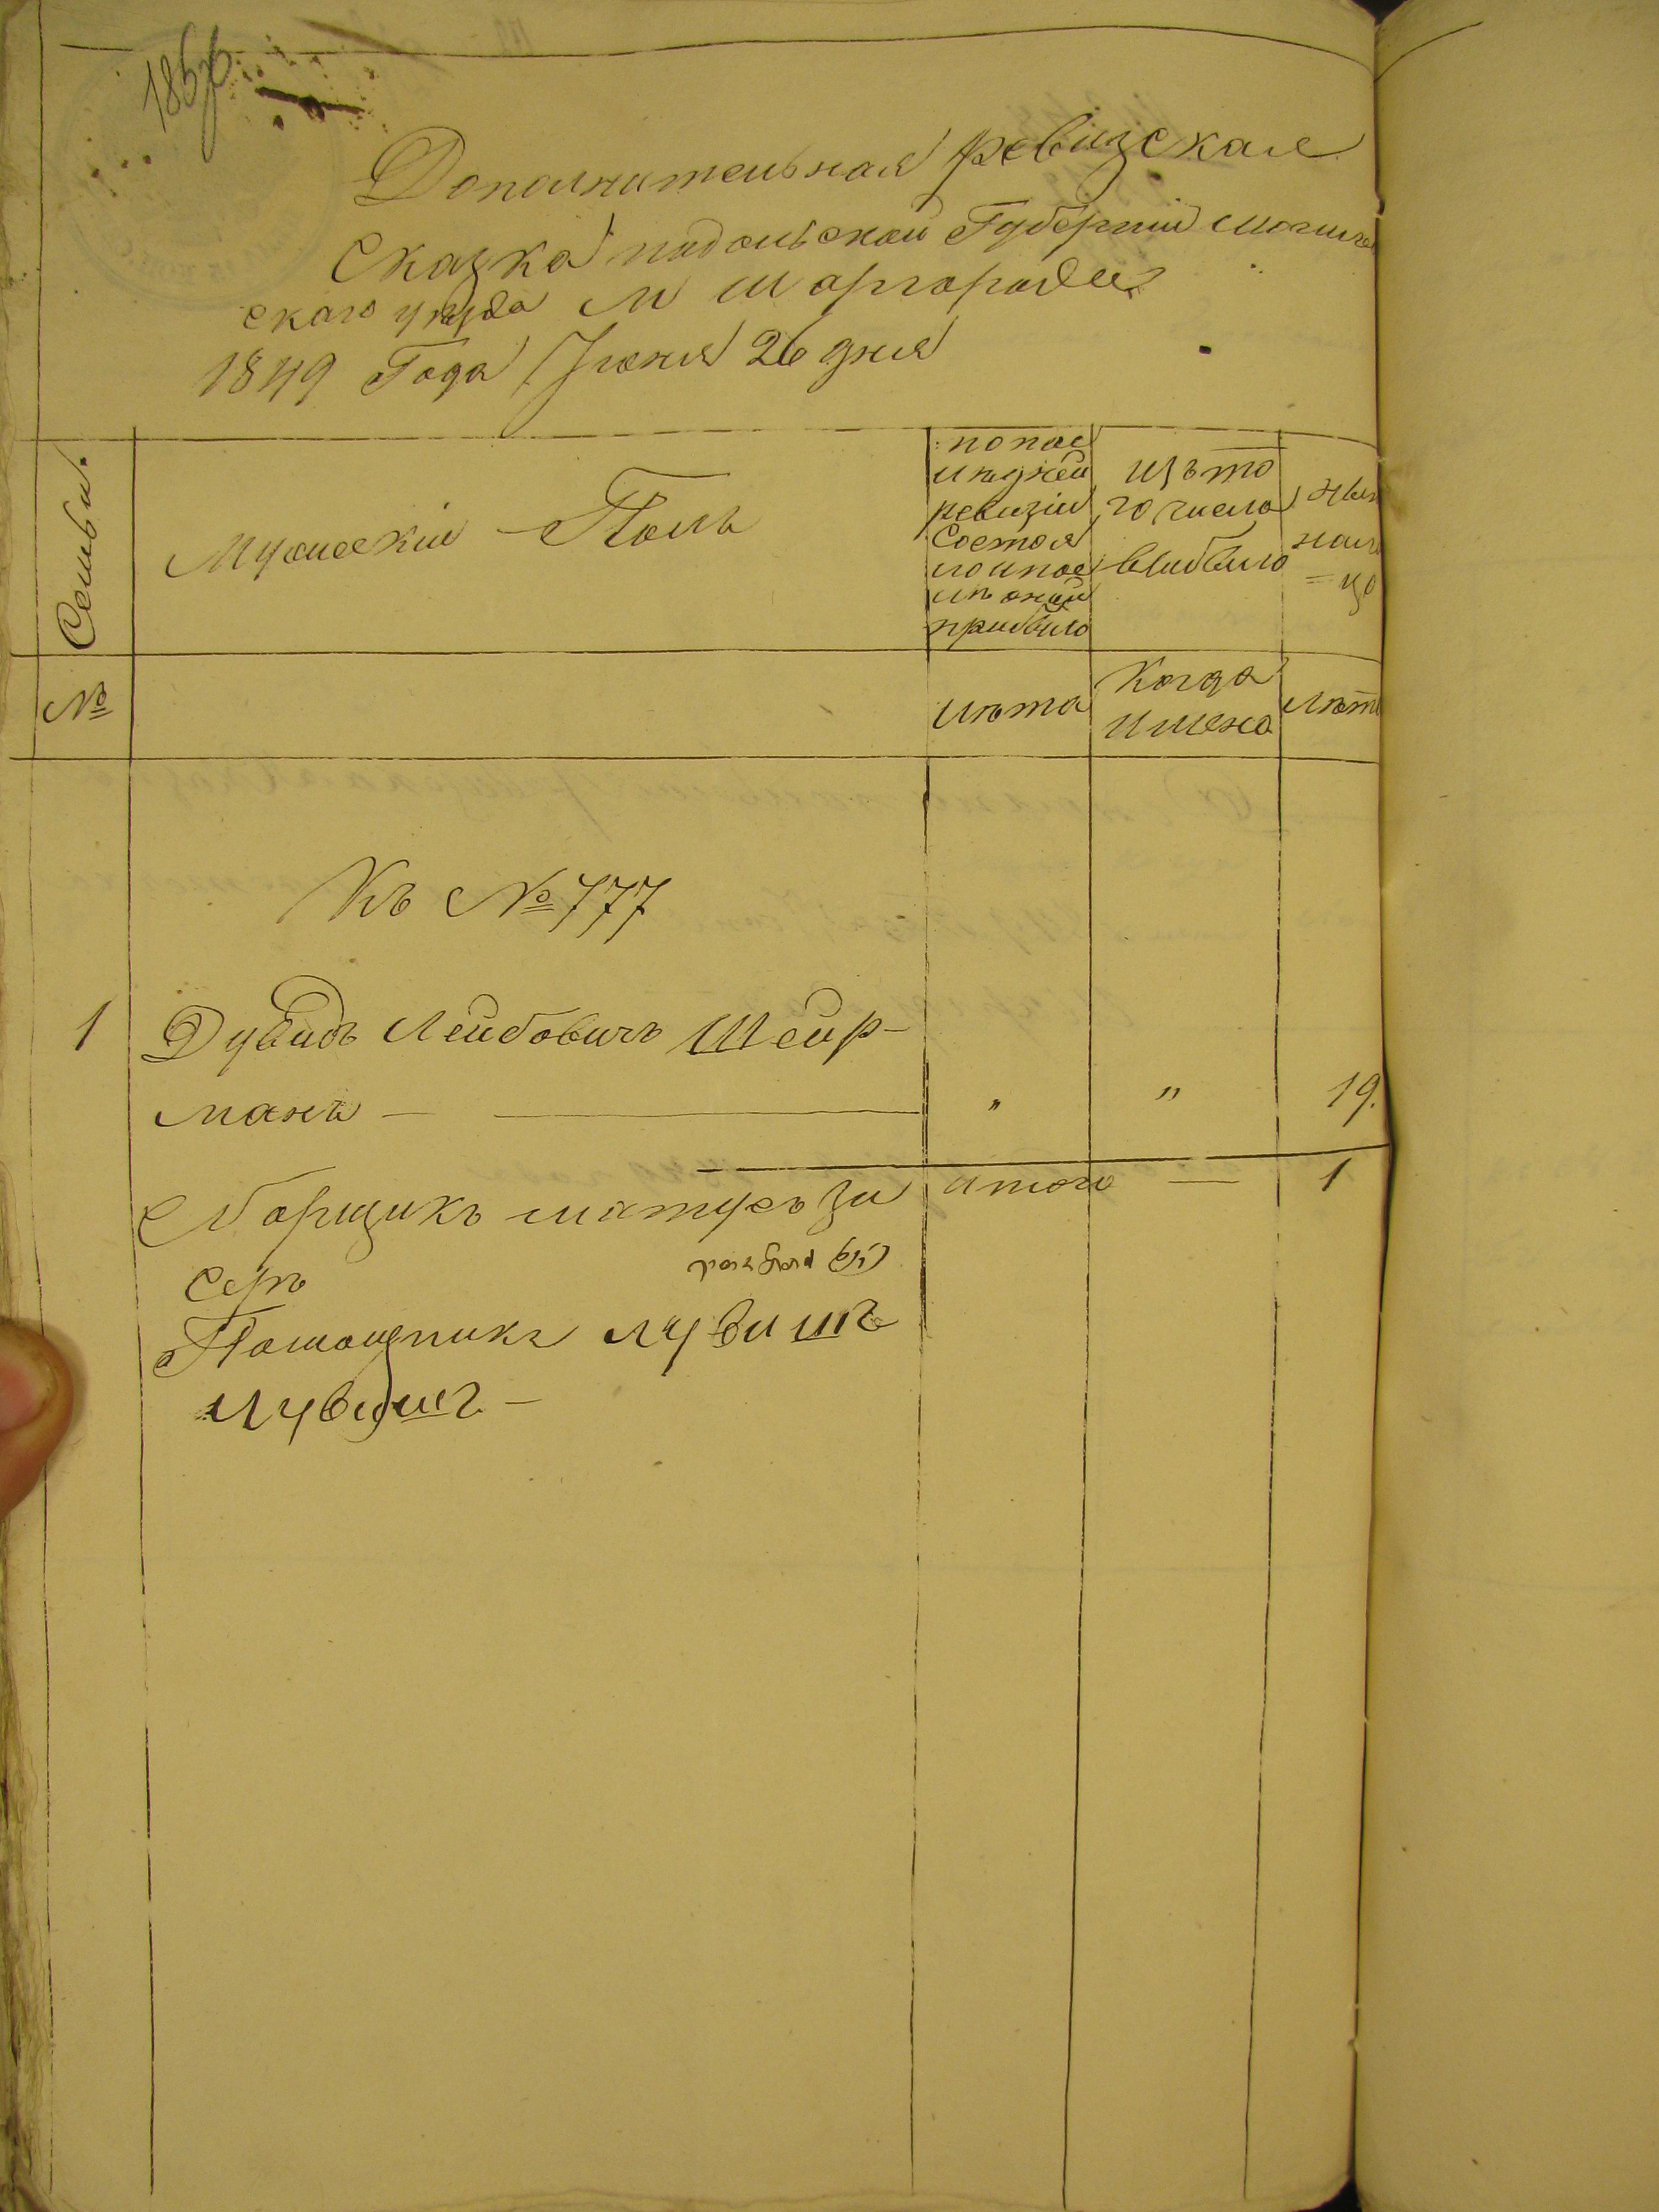 Дополнительная ревизская
Сказка подольской Губернии могиле
скаго уезда м шаргорода
1849 Года Июня 26 дня
Семьи.
Мужескій Полъ
по пос
лѣдней
ревизіи
Состоя
ло и пос
лѣ оной
прибыло
Изъ то
го числа
выбыло
нын
нали
= цо
№
лѣта
Когда
имено
лѣт
Къ № 777
1 Дувидъ Лейбовичъ Шейр-
манъ — " " 19.
итого — 1
Сборщикъ матусъ Зи
серъ
Помощникъ лувишъ